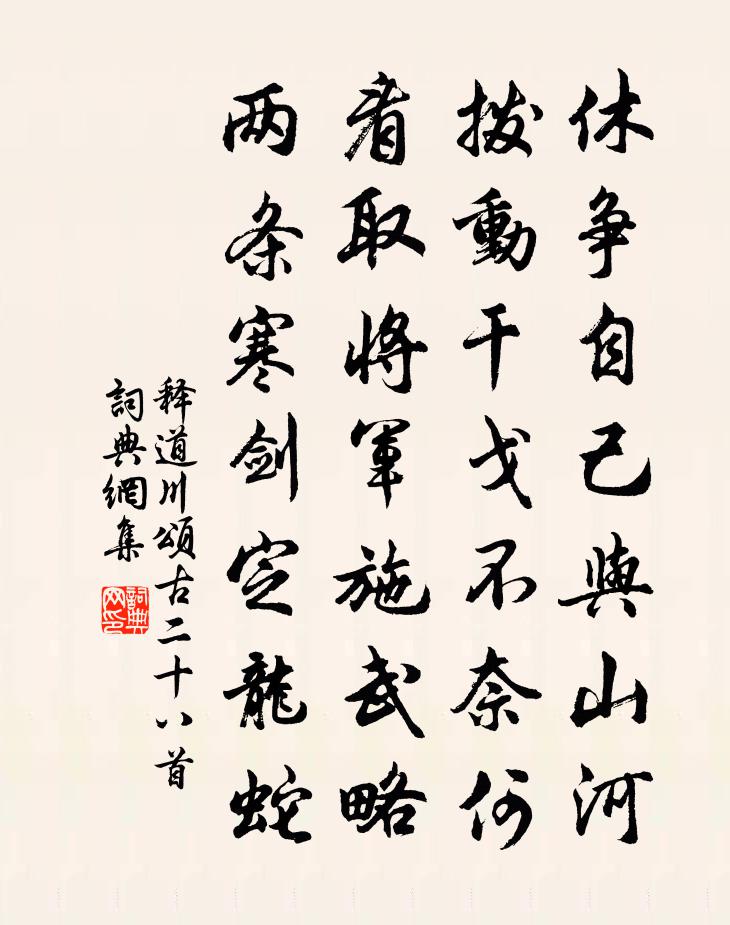 休争自己與山河
撥動干戈不奈何
看取將軍施武略
两条寒剑定龍蛇
释道川頌古二十八首
詞典網集
詞典网印